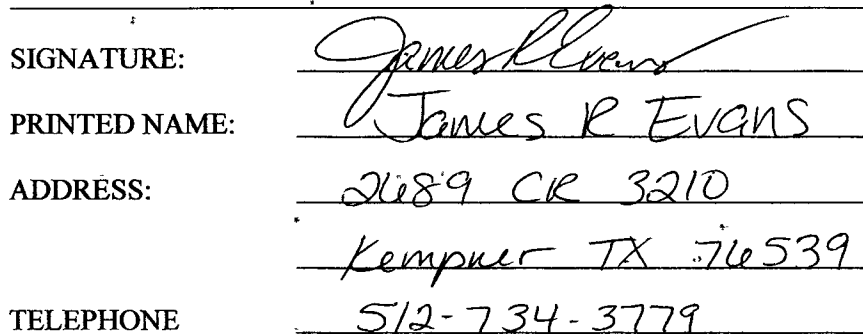 SIGNATURE: James R Evans
PRINTED NAME: James R Evans
ADDRESS: 2689 CR 3210
Kempner TX 76539
TELEPHONE 512-734-3779